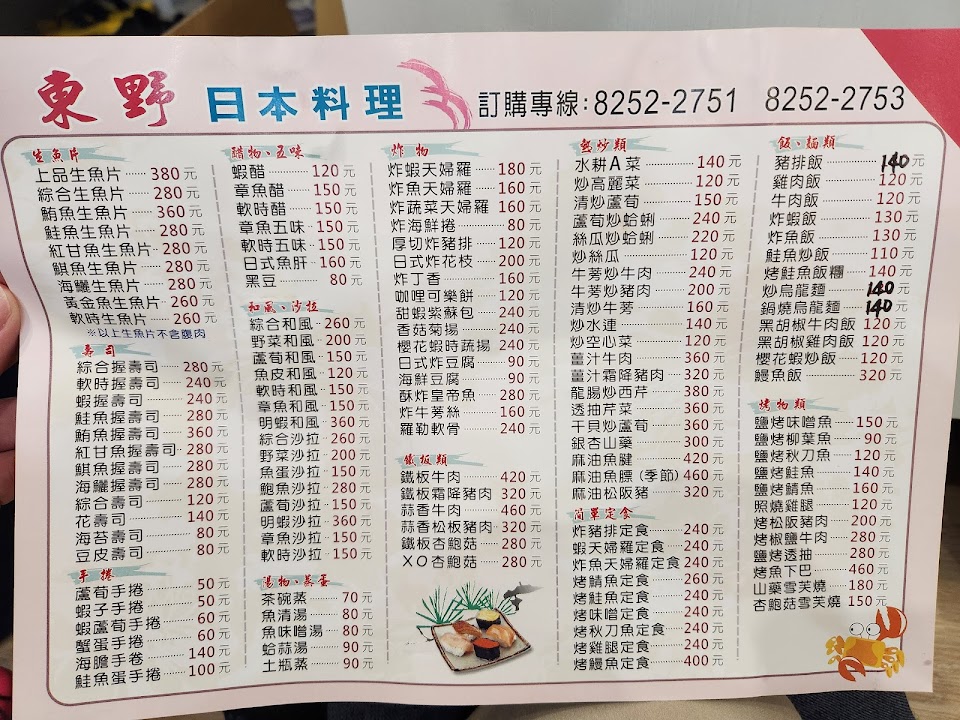 東野 日本料理 訂購專線:8252-2751 8252-2753
生魚片
上品生魚片 380元
綜合生魚片 280元
鮪魚生魚片 360元
鮭魚生魚片 280元
紅甘魚生魚片 280元
鯕魚生魚片 280元
海鱺生魚片 280元
黃金魚生魚片 260元
軟時生魚片 260元
※以上生魚片不含腹肉
壽司
綜合握壽司 280元
軟時握壽司 240元
蝦握壽司 240元
鮭魚握壽司 280元
鮪魚握壽司 360元
紅甘魚握壽司 280元
鯕魚握壽司 280元
海鱺握壽司 280元
綜合壽司 120元
花壽司 140元
海苔壽司 80元
豆皮壽司 80元
手捲
蘆筍手捲 50元
蝦子手捲 50元
蝦蘆筍手捲 60元
蟹蛋手捲 60元
海膽手卷 140元
鮭魚蛋手捲 100元
醋物、五味
蝦醋 120元
章魚醋 150元
軟時醋 150元
章魚五味 150元
軟時五味 150元
日式魚肝 160元
黑豆 80元
和風、沙拉
綜合和風 260元
野菜和風 200元
蘆筍和風 150元
魚皮和風 120元
軟時和風 150元
章魚和風 150元
明蝦和風 360元
綜合沙拉 260元
野菜沙拉 200元
魚蛋沙拉 150元
鮑魚沙拉 280元
蘆筍沙拉 150元
明蝦沙拉 360元
章魚沙拉 150元
軟時沙拉 150元
湯物、蒸蛋
茶碗蒸 70元
魚清湯 80元
魚味噌湯 80元
蛤蒜湯 90元
土瓶蒸 90元
炸物
炸蝦天婦羅 180元
炸魚天婦羅 160元
炸蔬菜天婦羅 160元
炸海鮮捲 80元
厚切炸豬排 120元
日式炸花枝 200元
炸丁香 160元
咖哩可樂餅 120元
甜蝦紫蘇包 240元
香菇菊揚 240元
櫻花蝦時蔬揚 240元
日式炸豆腐 90元
海鮮豆腐 90元
酥炸皇帝魚 280元
炸牛蒡絲 160元
羅勒軟骨 240元
鐵板類
鐵板牛肉 420元
鐵板霜降豬肉 320元
蒜香牛肉 460元
蒜香松板豬肉 320元
鐵板杏鮑菇 280元
XO杏鮑菇 280元
熱炒類
水耕A菜 140元
炒高麗菜 120元
清炒蘆筍 150元
蘆筍炒蛤蜊 240元
絲瓜炒蛤蜊 220元
炒絲瓜 120元
牛蒡炒牛肉 240元
牛蒡炒豬肉 200元
清炒牛蒡 160元
炒水連 140元
炒空心菜 120元
薑汁牛肉 360元
薑汁霜降豬肉 320元
龍腸炒西芹 380元
透抽芹菜 360元
干貝炒蘆筍 360元
銀杏山藥 300元
麻油魚腱 420元
麻油魚膘(季節) 460元
麻油松阪豬 320元
簡單定食
炸豬排定食 240元
蝦天婦羅定食 240元
炸魚天婦羅定食 240元
烤鯖魚定食 260元
烤鮭魚定食 240元
烤味噌定食 240元
烤秋刀魚定食 240元
烤雞腿定食 240元
烤鰻魚定食 400元
飯、麵類
豬排飯 140元
雞肉飯 120元
牛肉飯 120元
炸蝦飯 130元
炸魚飯 130元
鮭魚炒飯 110元
烤鮭魚飯糰 140元
炒烏龍麵 140元
鍋燒烏龍麵 140元
黑胡椒牛肉飯 120元
黑胡椒雞肉飯 120元
櫻花蝦炒飯 120元
鰻魚飯 320元
烤物類
鹽烤味噌魚 150元
鹽烤柳葉魚 90元
鹽烤秋刀魚 120元
鹽烤鮭魚 140元
鹽烤鯖魚 160元
照燒雞腿 120元
烤松阪豬肉 200元
烤椒鹽牛肉 280元
鹽烤透抽 280元
烤魚下巴 460元
山藥雪芙燒 180元
杏鮑菇雪芙燒 150元